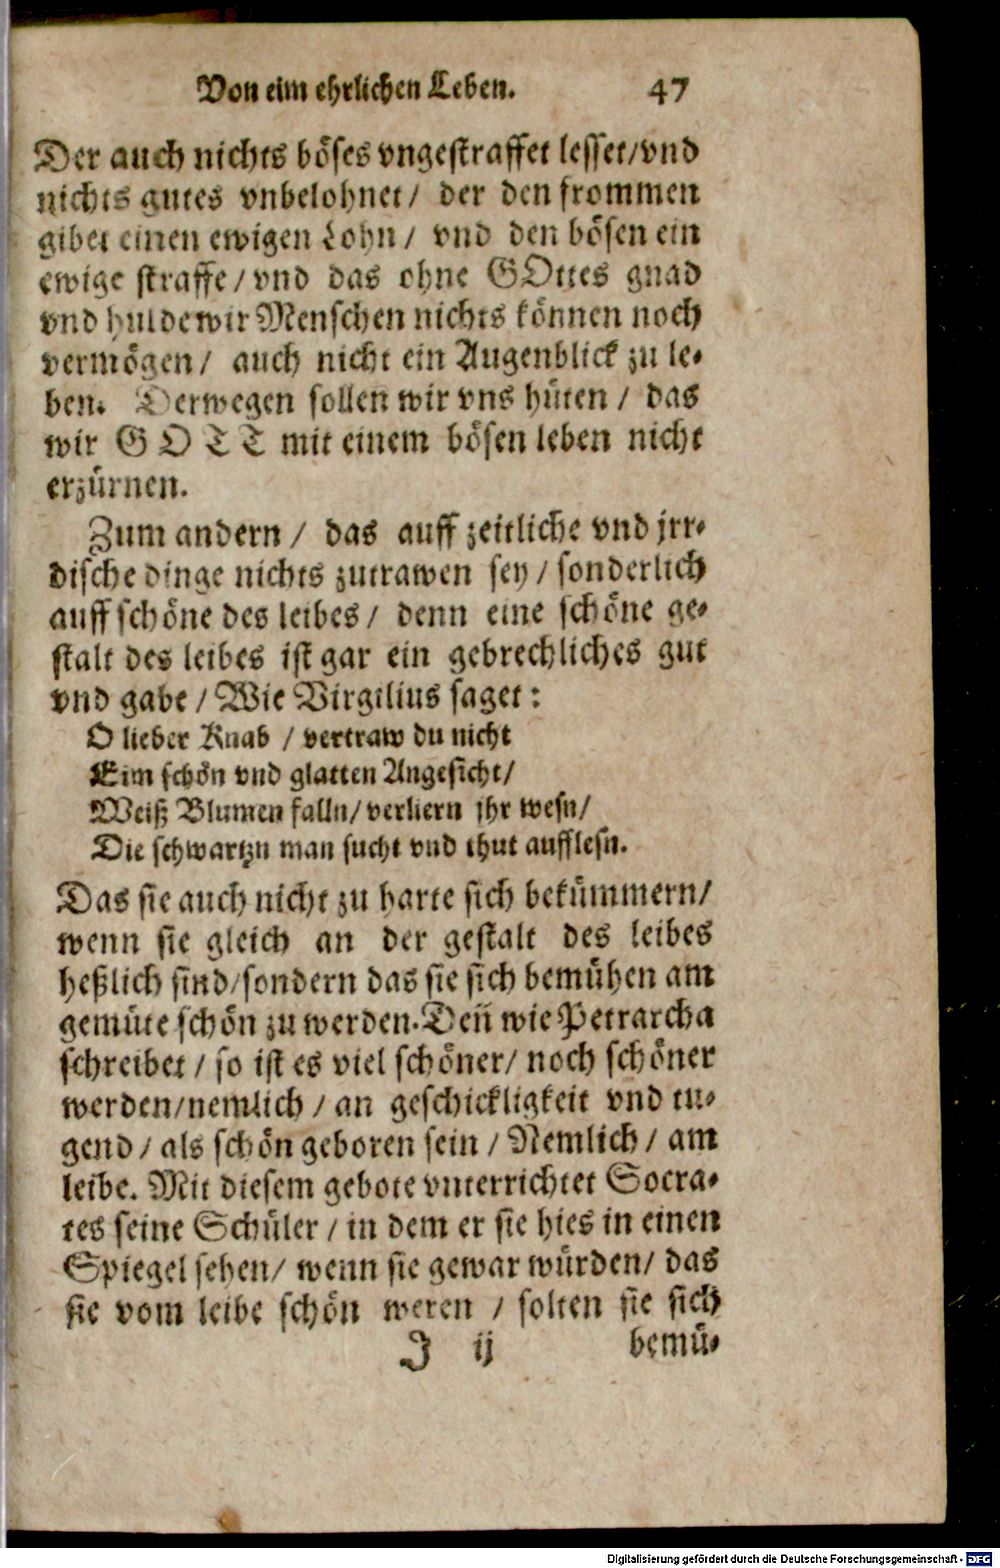 Von eim ehrlichen Leben. 47
Der auch nichts böses vngestraffet lesset/vnd
nichts gutes vnbelohnet/ der den frommen
gibet einen ewigen Lohn/ vnd den bösen ein
ewige straffe/vnd das ohne GOttes gnad
vnd hulde wir Menschen nichts können noch
vermögen/ auch nicht ein Augenblick zu le-
ben. Derwegen sollen wir vns hüten/ das
wir GOTT mit einem bösen leben nicht
erzürnen.
Zum andern/ das auff zeitliche vnd jrr-
dische dinge nichts zutrawen sey/sonderlich
auff schöne des leibes/ denn eine schöne ge-
stalt des leibes ist gar ein gebrechliches gut
vnd gabe/Wie Virgilius saget:
O lieber Knab/vertraw du nicht
Eim schön vnd glatten Angesicht/
Weiß Blumen falln/verliern jhr wesn/
Die schwartzn man sucht vnd thut aufflesn.
Das sie auch nicht zu harte sich bekümmern/
wenn sie gleich an der gestalt des leibes
heßlich sind/sondern das sie sich bemühen am
gemüte schön zu werden. Deñ wie Petrarcha
schreibet/so ist es viel schöner/noch schöner
werden/nemlich/an geschickligkeit vnd tu-
gend/als schön geboren sein/Nemlich/am
leibe. Mit diesem gebote vnterrichtet Socra-
tes seine Schüler/in dem er sie hies in einen
Spiegel sehen/ wenn sie gewar würden/ das
sie vom leibe schön weren/solten sie sich
J ij bemü-
Digitalisierung gefördert durch die Deutsche Forschungsgemeinschaft - DFG